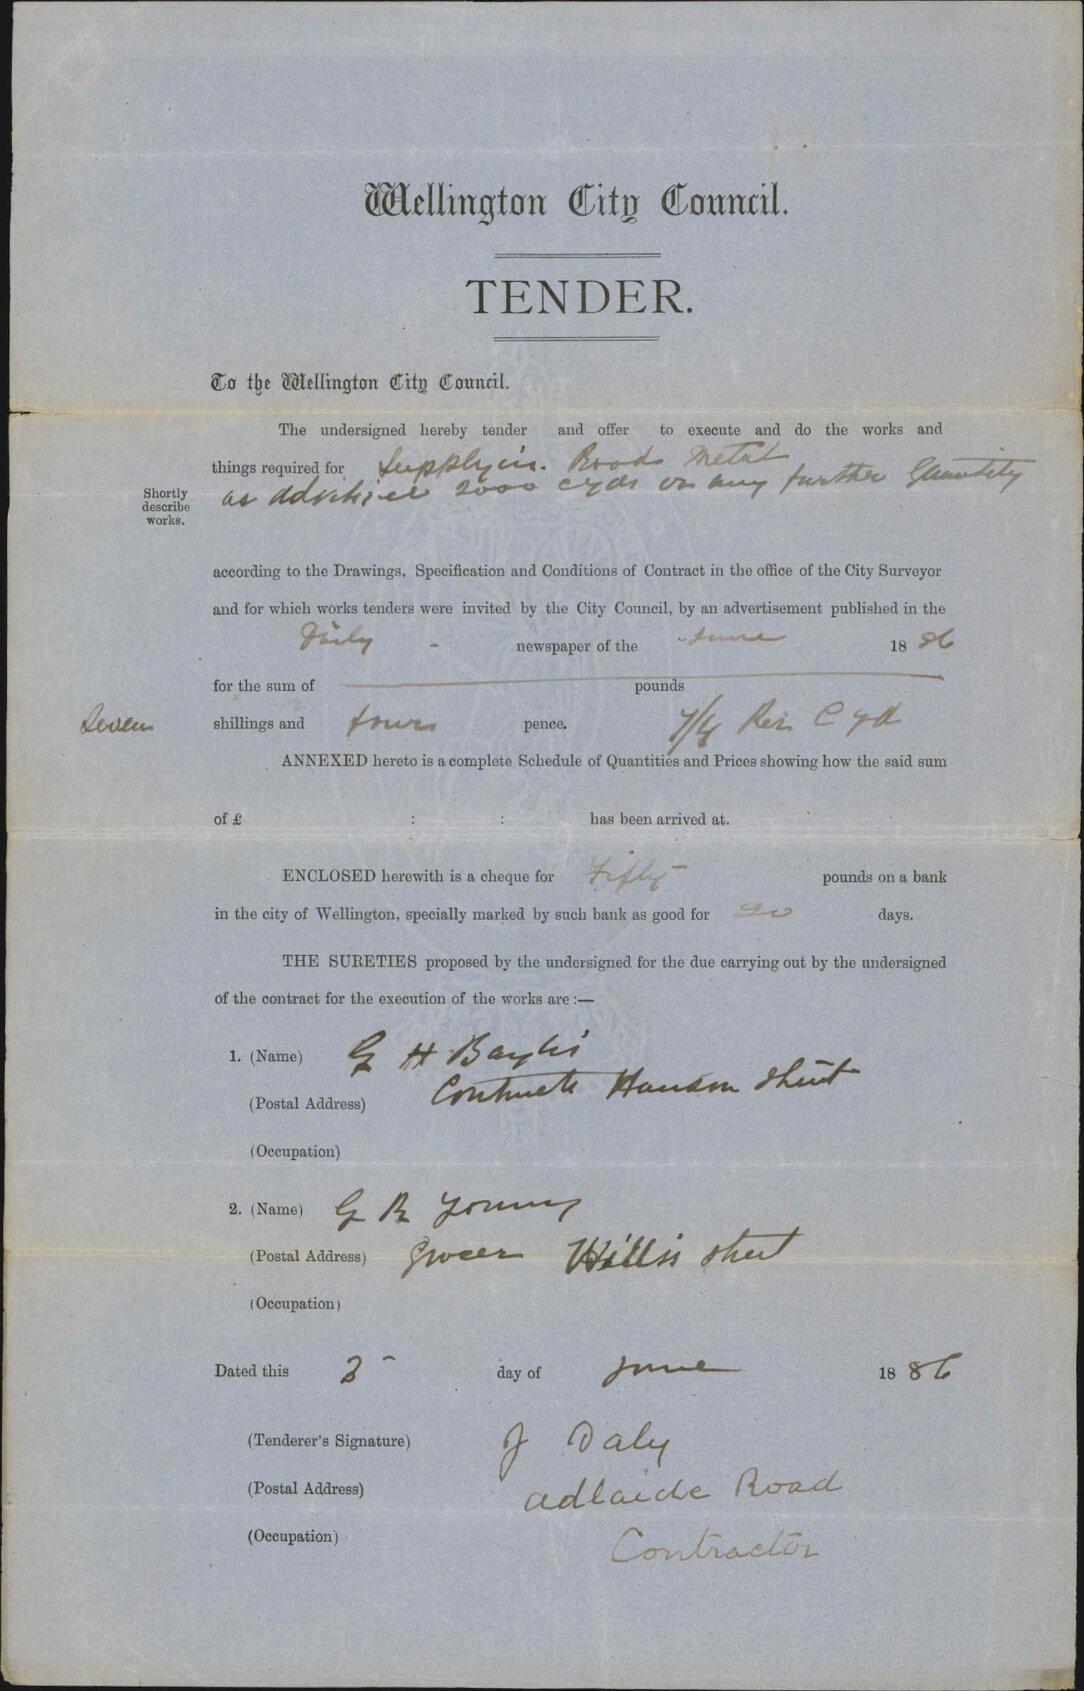 Wellington City Council.
TENDER.
To the Wellington City Council.
The undersigned hereby tender and offer to execute and do the works and
things required for Supplyin. Road Metal
Shortly describe works.
as 2000 cyds or any further Quantity
according to the Drawings, Specification and Conditions of Contract in the office of the City Surveyor
and for which works tenders were invited by the City Council, by an advertisement published in the
Daily - newspaper of the June 1886
for the sum of pounds
Seven shillings and four pence. 7/4 Per C yd
ANNEXED hereto is a complete Schedule of Quantities and Prices showing how the said sum
of £ : : has been arrived at.
ENCLOSED herewith is a cheque for Fifty pounds on a bank
in the city of Wellington, specially marked by such bank as good for days.
THE SURETIES proposed by the undersigned for the due carrying out by the undersigned
of the contract for the execution of the works are :—
1. (Name) G H Baylis
(Postal Address) Hanson Street
(Occupation)
2. (Name) G R Young
(Postal Address) Grocer Willis street
(Occupation)
Dated this day of June 1886
(Tenderer's Signature) J Daly
(Postal Address) adlaide Road
(Occupation) Contractor